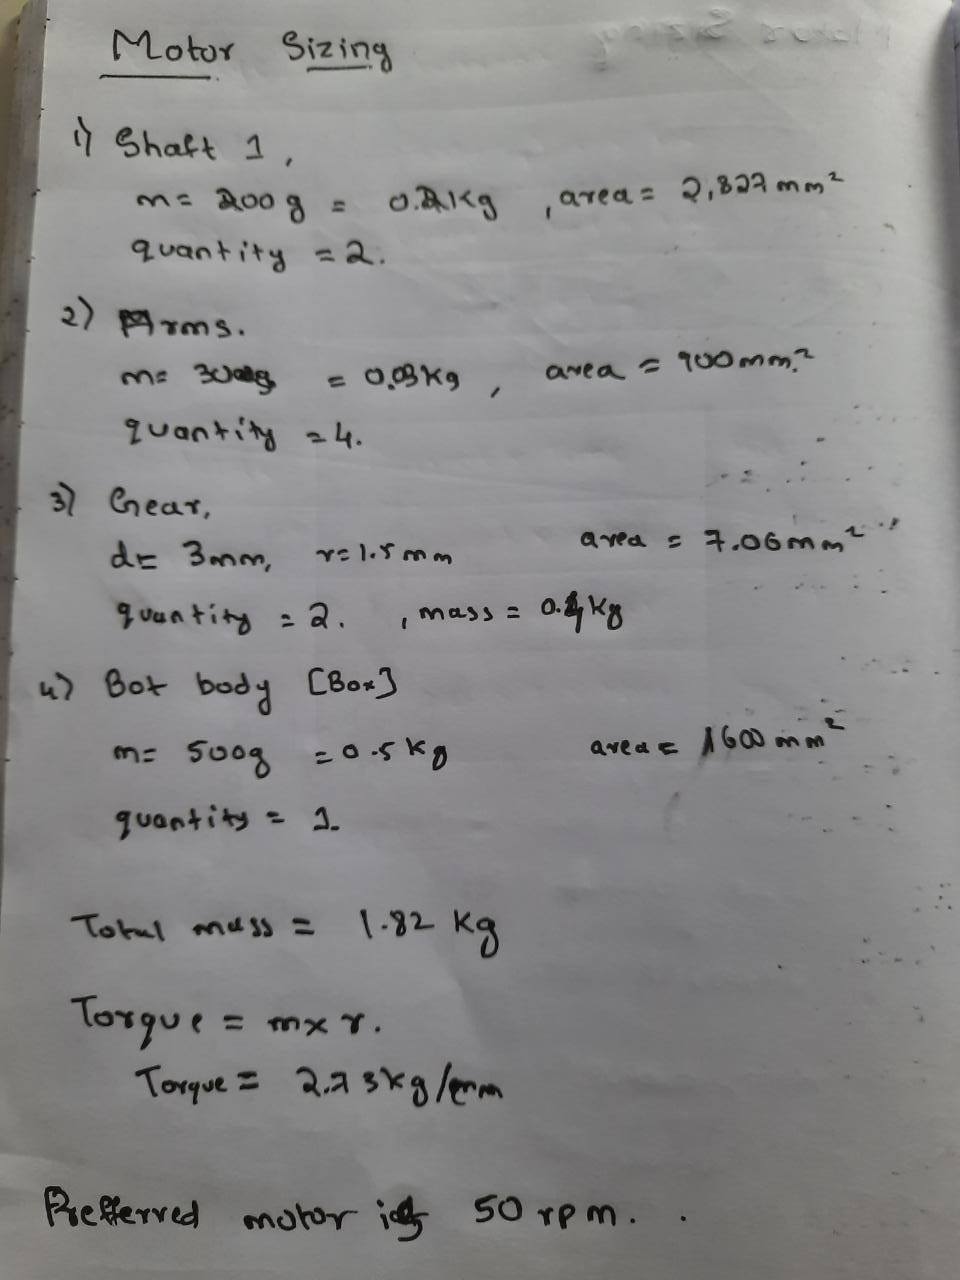 Motor Sizing
1) Shaft 1,
m= 200g = 0.2kg , area = 2,827mm²
quantity = 2.
2) Arms.
m= = 0.03kg , area = 900mm²
quantity = 4.
3) Gear,
d= 3mm, r=1.5mm area = 7.06mm²
quantity = 2. , mass = kg
4) Bot body [Box]
m= 500g = 0.5kg area = 1600mm²
quantity = 1.
Total mass = 1.82 kg
Torque = m×r.
Torque = 2.73kg/mm
Prefferred motor is 50 rpm.